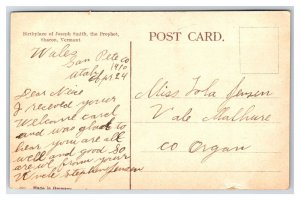 Birthplace of Joseph Smith, the Prophet,
Sharon, Vermont
POST CARD.
Wales
San Pete Co
Utah 1910
Sept 24
Dear Niece
I receved your
Welcome card
and was glad to
hear you are all
well and good so
are we from your
Uncle Stephen Jensen
Miss Iola Jensen
Vale Malhure
co Organ
Made in Germany